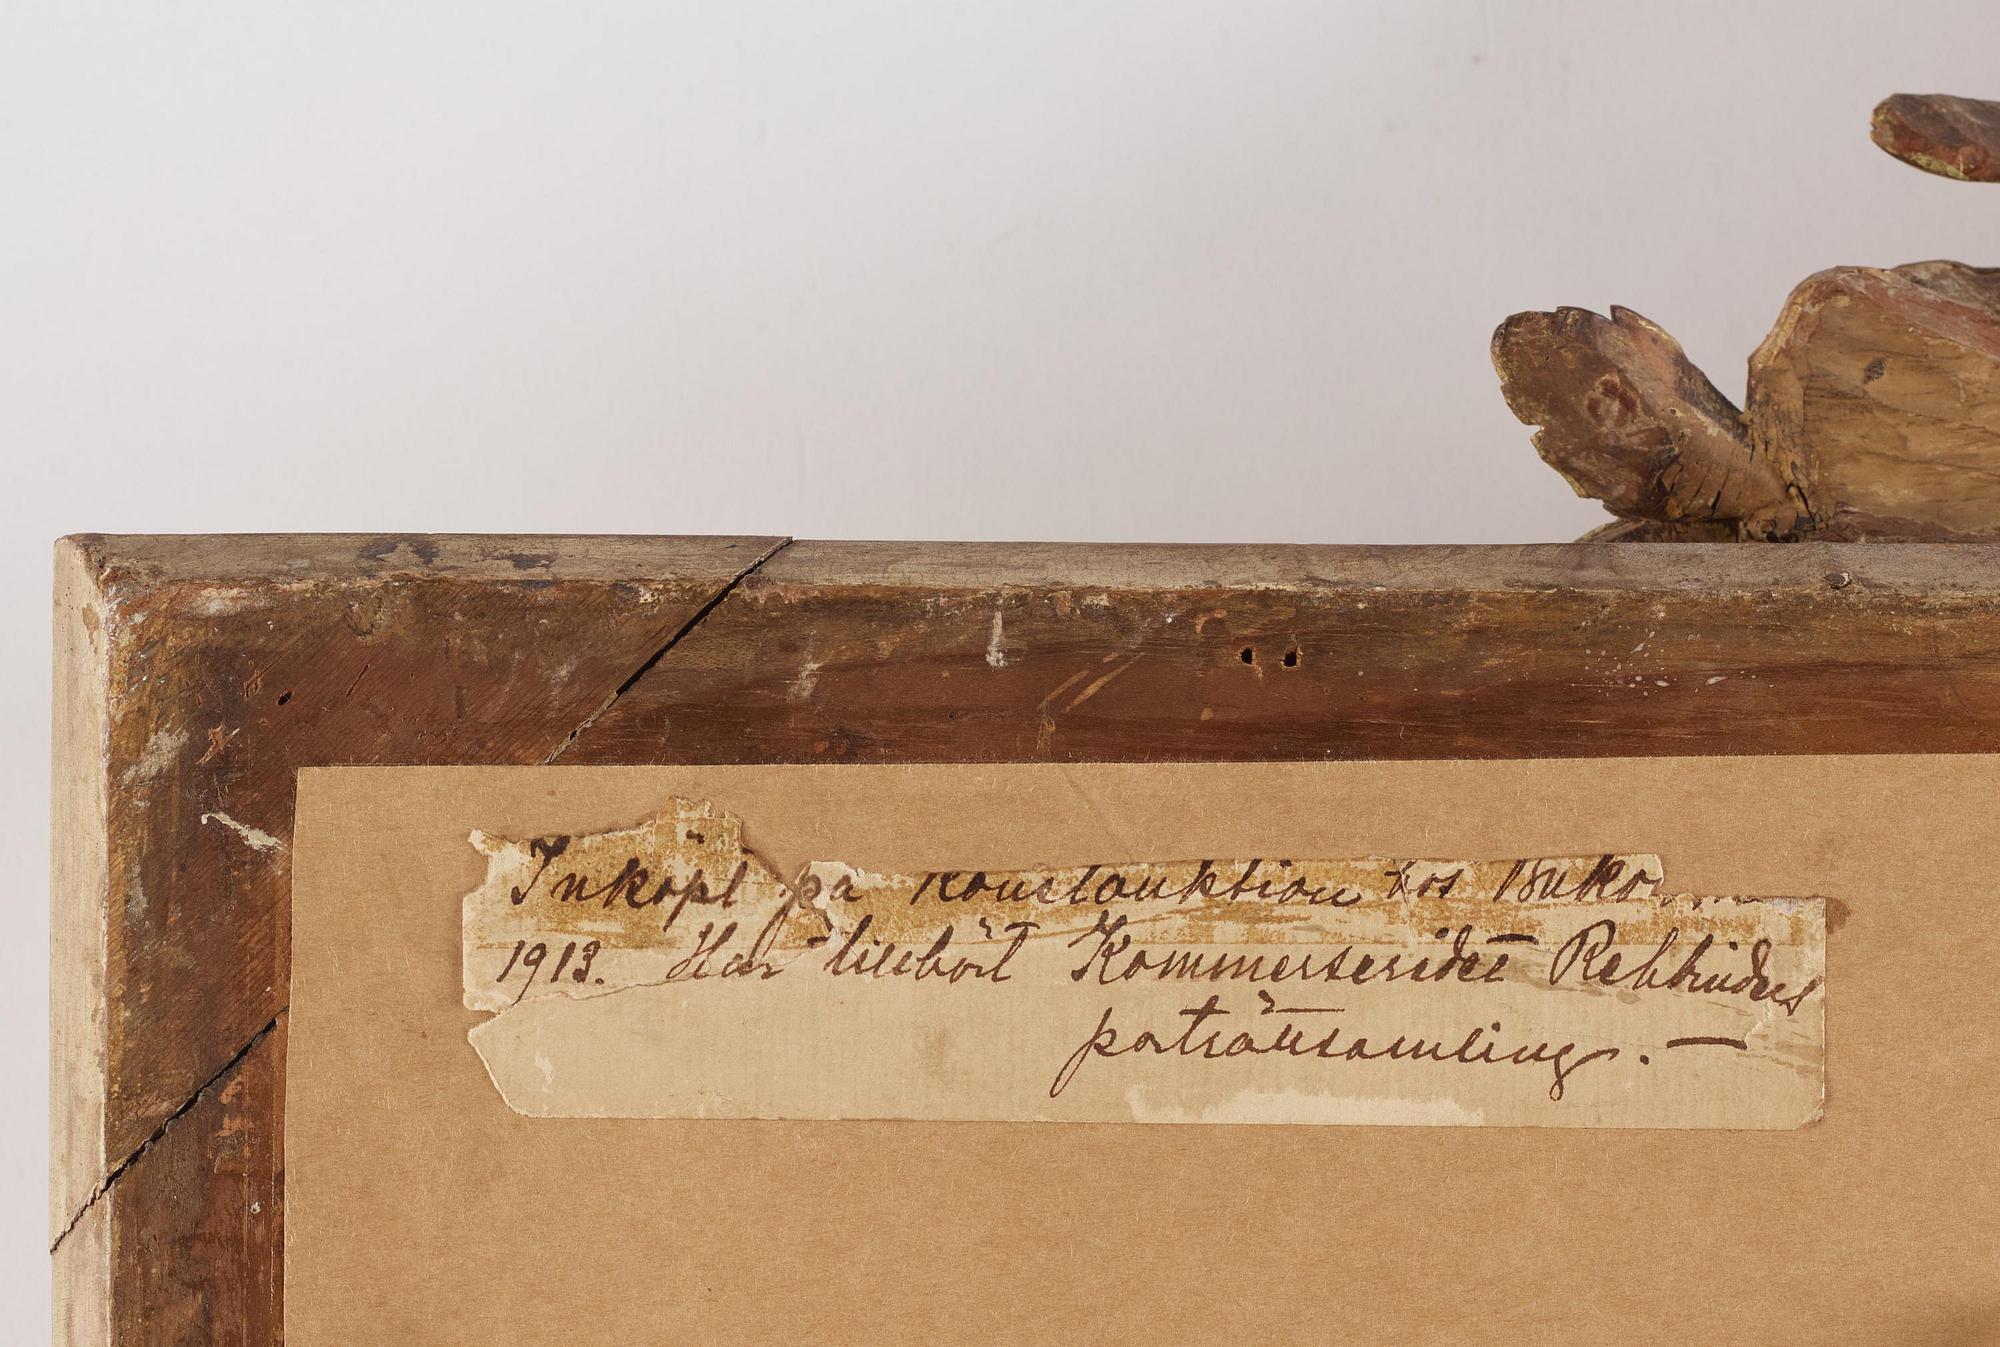 Inköpt på Konstauktion hos Buko
1913. Har tillhört Kommerserådet Rehbinders
porträttsamling. —